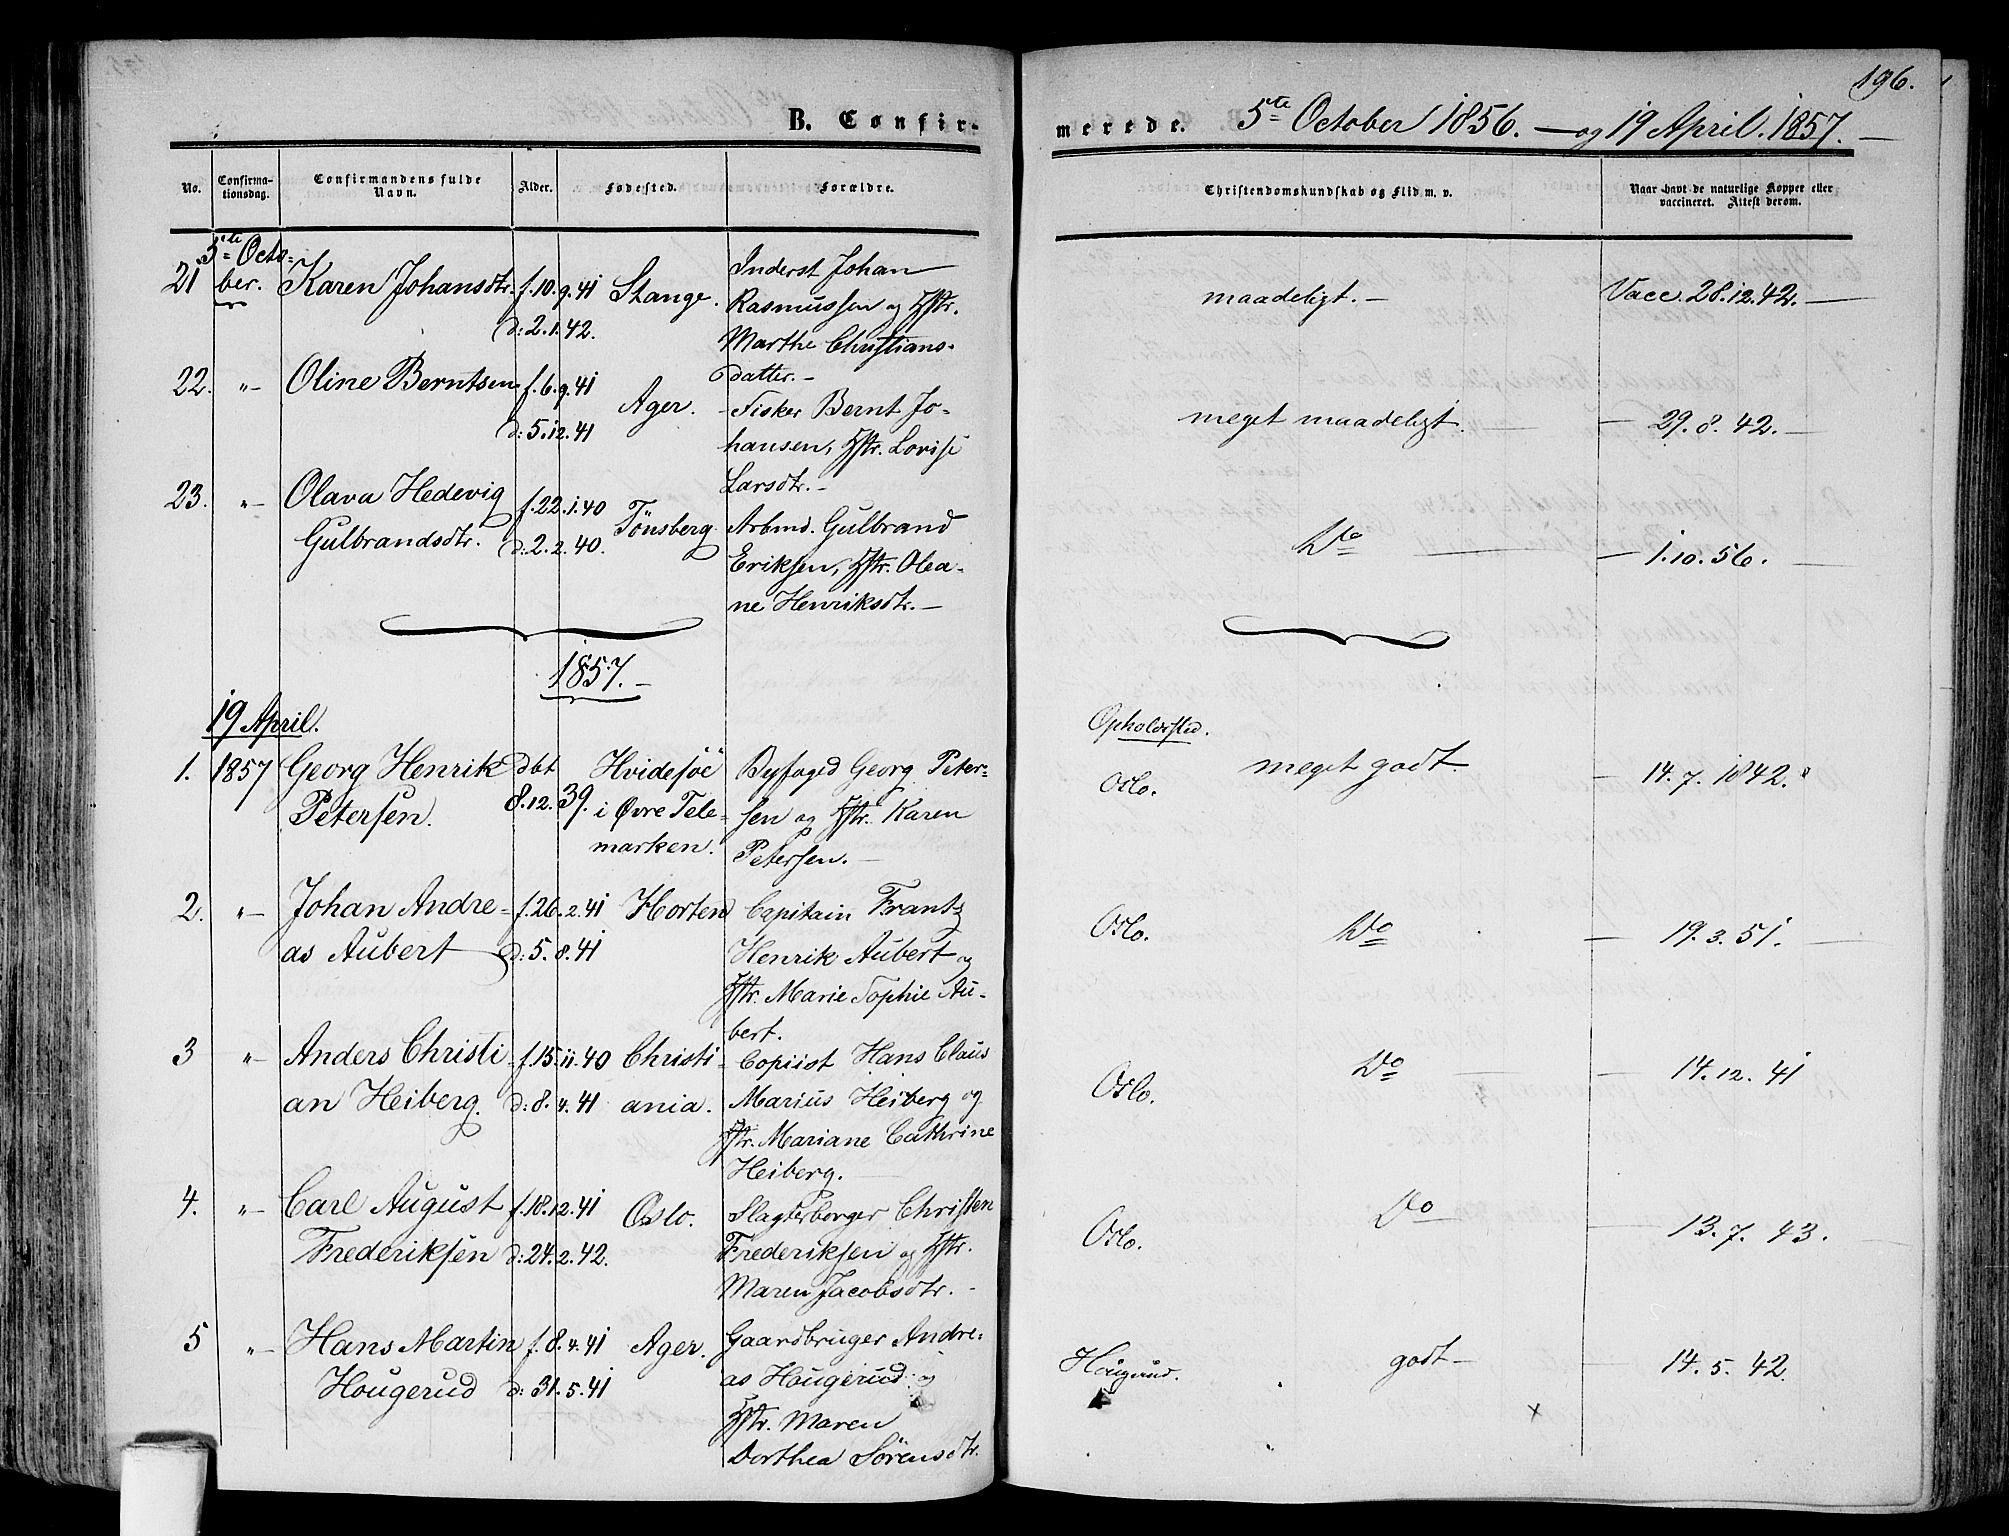 196.
B. Confir-
merede. 5te October 1856. — og 19 April. 1857. —
No.
Confirma-
tionsdag.
Confirmandens fulde
Navn.
Alder.
Fødested.
Forældre.
Christendomskundskab og Flid m. v.
Naar havt de naturlige Kopper eller
vaccineret. Attest derom.
5te Octo-
21 ber. Karen Johansdtr. f. 10. 9. 41 Stange. Inderst Johan
d: 2. 1. 42. Rasmussen og Hstr.
Marthe Christians-
datter. -
maadeligt. - Vacc. 28. 12. 42. —
22. " Oline Berntsen f. 6. 9. 41 Ager. - Fisker Bernt Jo-
d: 5. 12. 41 hansen, Hstr. Lovise
Larsdtr. -
meget maadeligt. — 29. 8. 42. —
23. " Olava Hedevig f. 22. 1. 40 Tönsberg Arbmd. Gulbrand
Gulbrandsdtr. d: 2. 2. 40. Eriksen, Hstr. Olea-
ne Henriksdtr. -
Do — 1. 10. 56. —
1857. -
19 April.
Opholdssted.
1. 1857 Georg Henrik dbt Hvidesöe Byfoged Georg Peter-
Petersen. 8. 12. 39. i Øvre Tele- sen og Hstr. Karen
marken. Petersen. —
Oslo. meget godt. - 14. 7. 1842.
2. " Johan Andre- f. 26. 2. 41 Horten Capitain Frantz
as Aubert d: 5. 8. 41 Henrik Aubert og
Hstr. Marie Sophie Au-
bert.
Oslo. Do — 19. 3. 51. —
3 " Anders Christi- f. 15. 11. 40 Christi- Copiist Hans Claus
an Heiberg. d: 8. 4. 41 ania. Marius Heiberg og
Hstr. Mariane Cathrine
Heiberg. —
Oslo. Do — 14. 12. 41
4. " Carl August f. 18. 12. 41 Oslo. Slagterborger Christen
Frederiksen d: 24. 2. 42. Frederiksen og Hstr.
Maren Jacobsdtr. -
Oslo. Do — 13. 7. 43.
5 " Hans Martin f. 8. 4. 41 Ager. Gaardbruger Andre-
Hougerud d: 31. 5. 41 as Hougerud og
Hstr. Maren
Dorthea Sörensdtr.
Hougerud. godt - — 14. 5. 42.